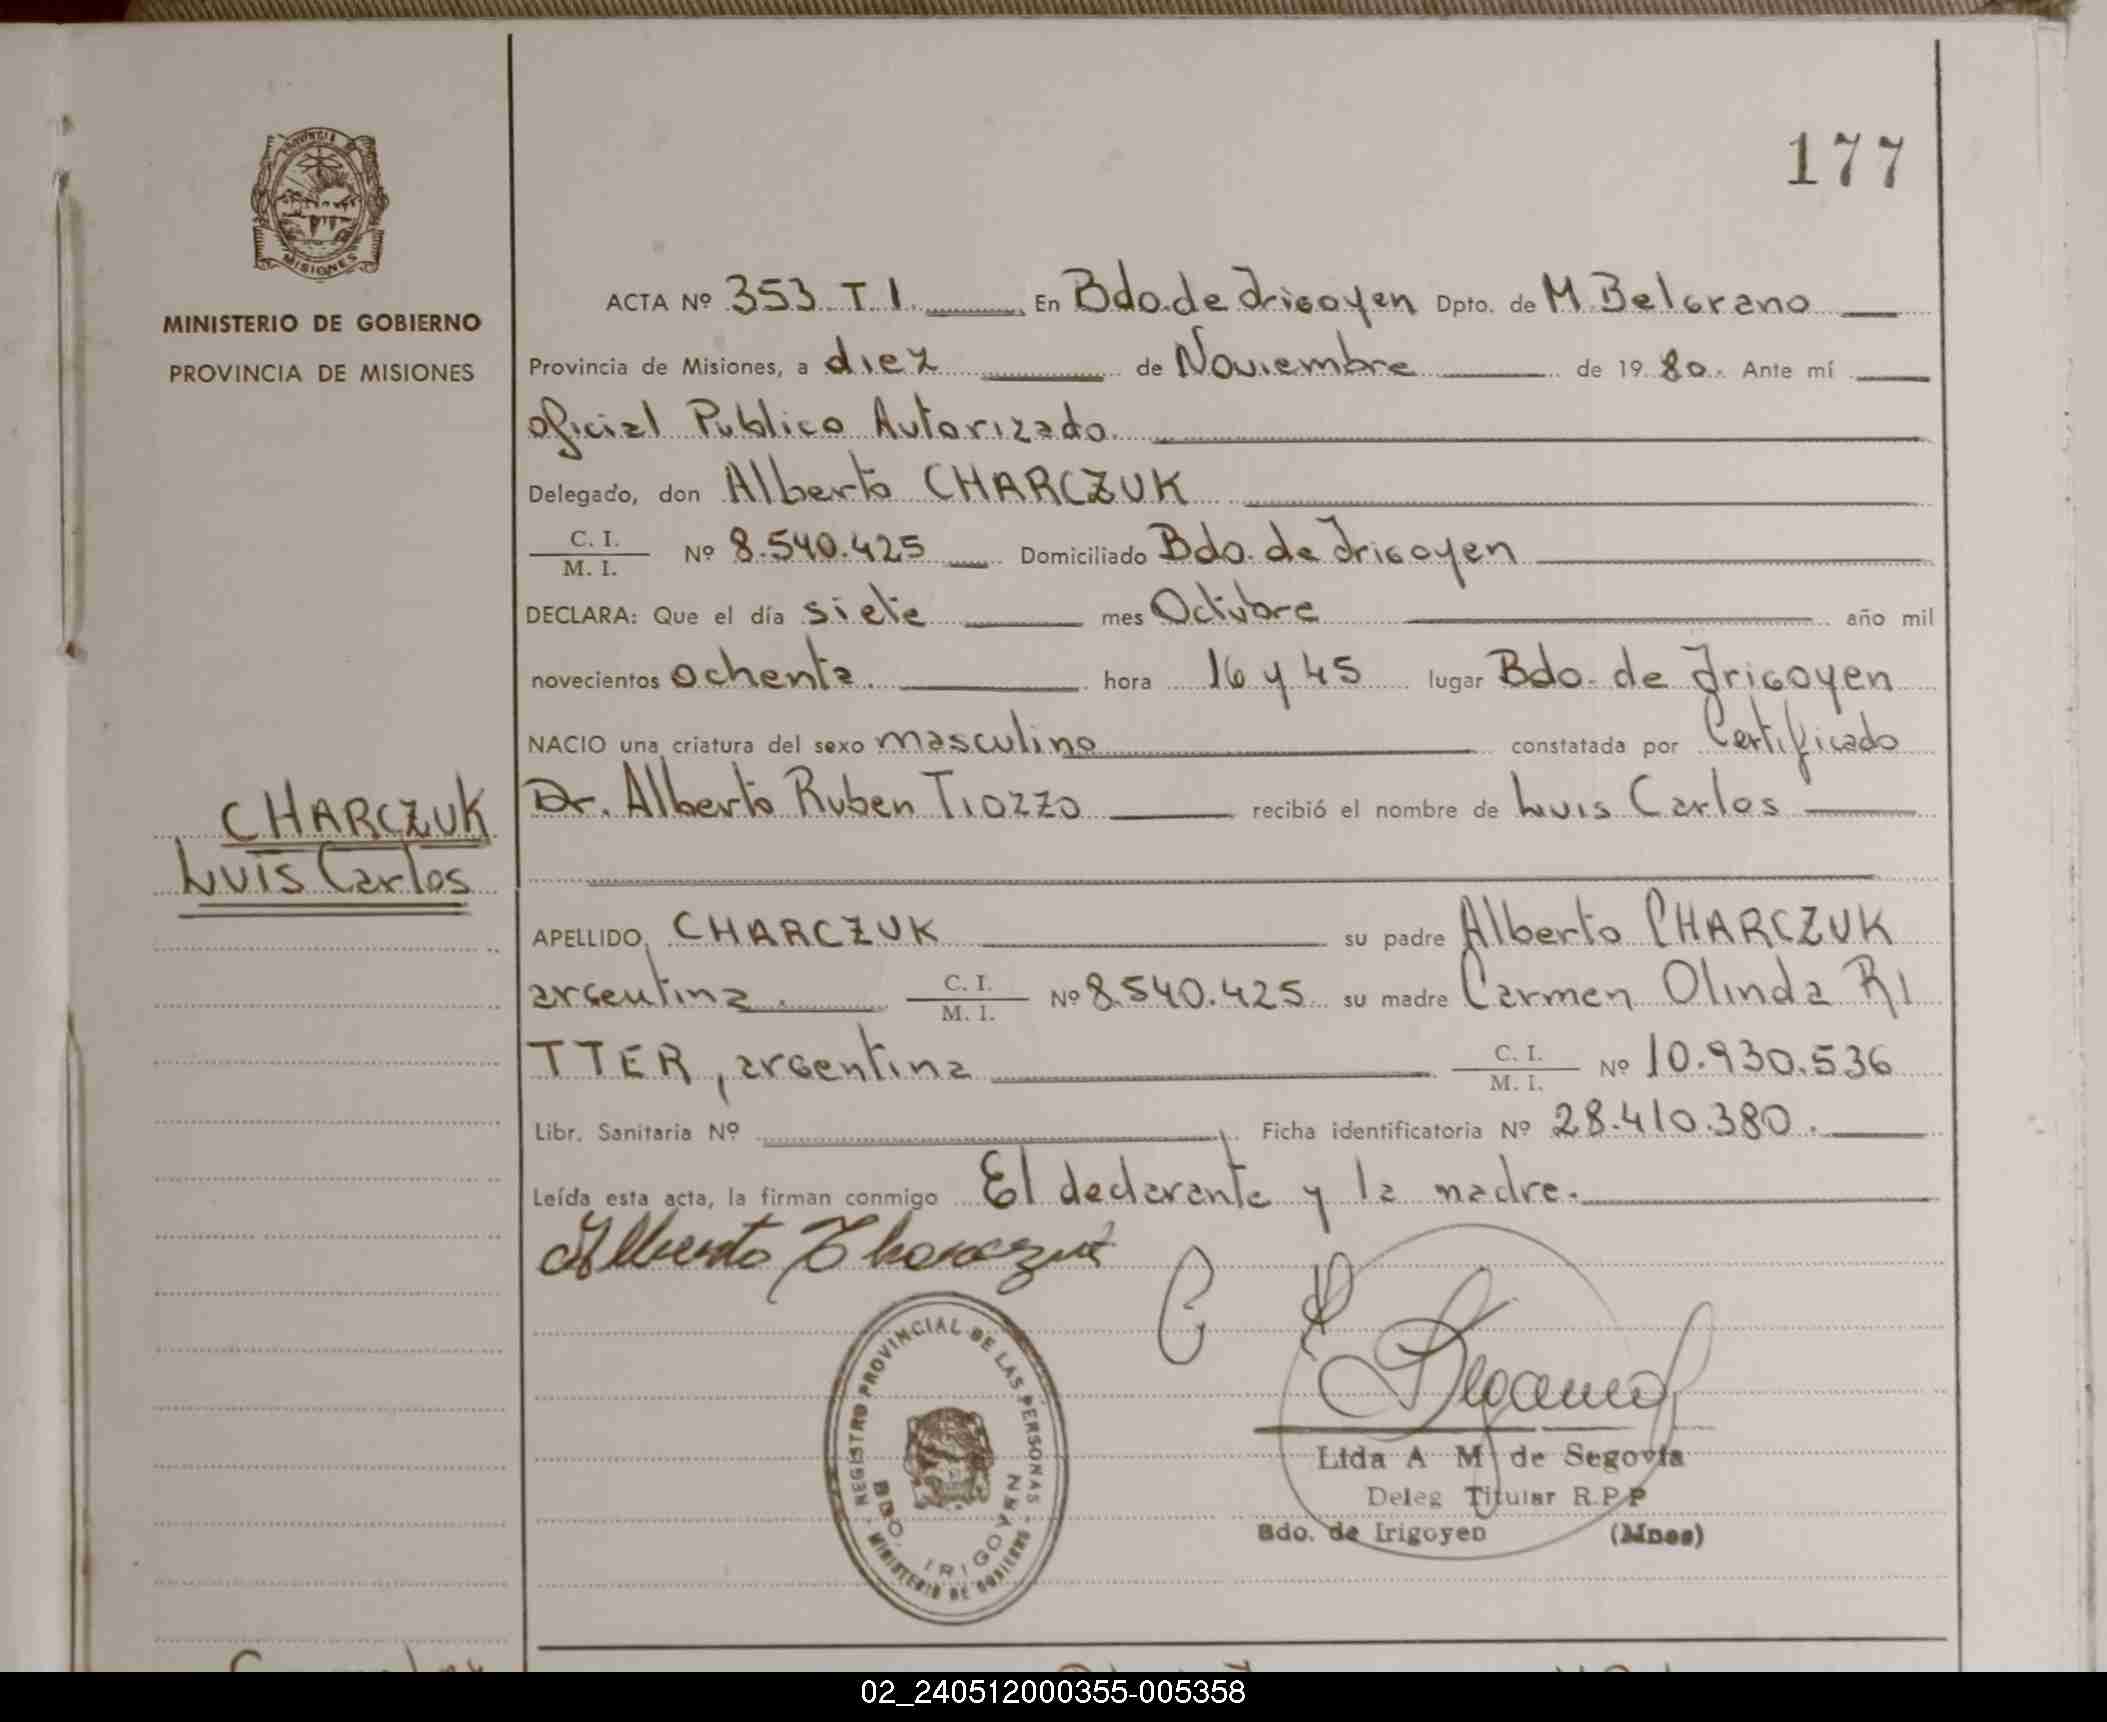 177
PROVINCIA
MISIONES
MINISTERIO DE GOBIERNO
PROVINCIA DE MISIONES
ACTA Nº 353 T I En Bdo. de Irigoyen Dpto. de M. Belgrano
Provincia de Misiones, a diez de Noviembre de 1980. Ante mí
oficial Publico Autorizado.
Delegado, don Alberto CHARCZUK
C. I.
M. I. Nº 8.540.425 Domiciliado Bdo. de Irigoyen
DECLARA: Que el día siete mes Octubre año mil
novecientos ochenta. hora 16 y 45 lugar Bdo. de Irigoyen
NACIO una criatura del sexo masculino constatada por Certificado
Dr. Alberto Ruben Tiozzo recibió el nombre de Luis Carlos
CHARCZUK
Luis Carlos
APELLIDO, CHARCZUK su padre Alberto CHARCZUK
argentina. C. I.
M. I. Nº 8.540.425 su madre Carmen Olinda RI
TTER, argentina C. I.
M. I. Nº 10.930.536
Libr. Sanitaria Nº Ficha identificatoria Nº 28.410.380.
Leída esta acta, la firman conmigo El declarante y la madre.
Alberto Charczuk
C R
REGISTRO PROVINCIAL DE LAS PERSONAS
BDO. IRIGOYEN
MINISTERIO DE GOBIERNO
Lida A M de Segovia
Deleg Titular R.P.P
Bdo. de Irigoyen (Mnes)
02_240512000355-005358